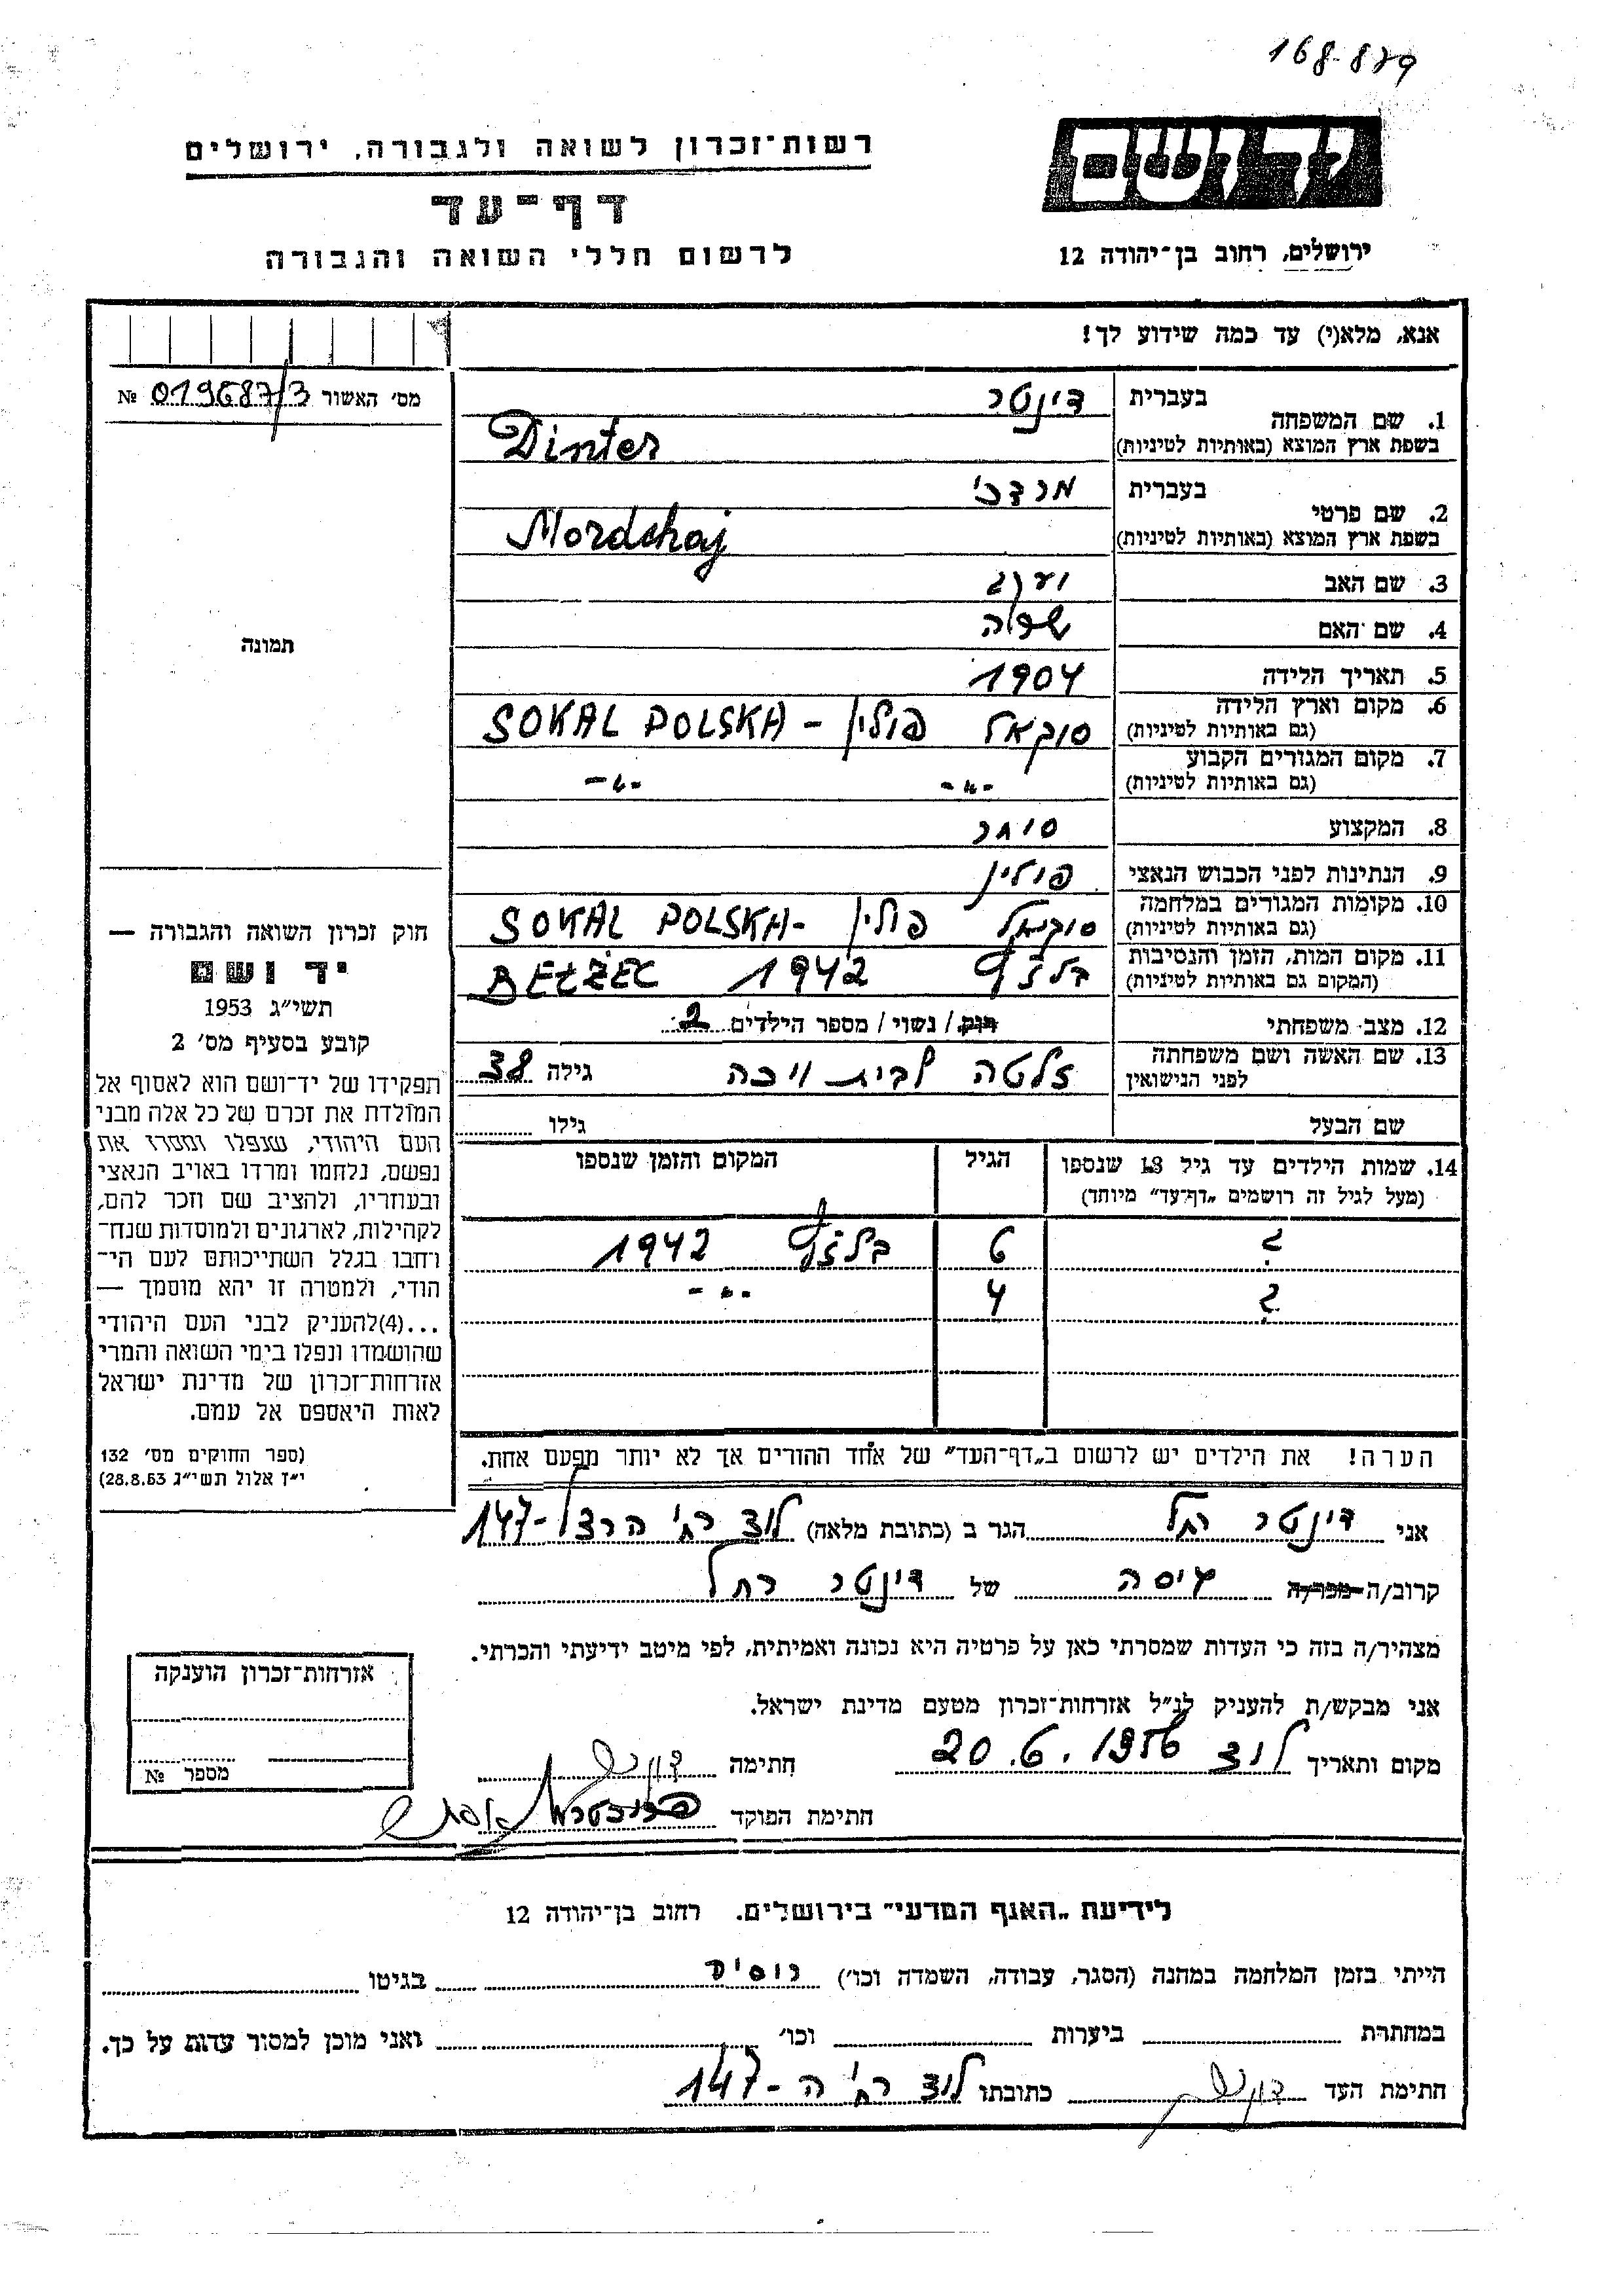 168.879
רשות־זכרון לשואה ולגבורה, ירושלים
יד ושם
דף־עד
לרשום חללי השואה והגבורה
ירושלים, רחוב בן־יהודה 12
אנא, מלא(י) עד כמה שידוע לך!
מס׳ האשור № 019687/3
1. שם המשפחה
בעברית דינטר
בשפת ארץ המוצא (באותיות לטיניות) Dinter
2. שם פרטי
בעברית מרדכי
בשפת ארץ המוצא (באותיות לטיניות) Mordchaj
3. שם האב
4. שם האם
5. תאריך הלידה 1904
6. מקום וארץ הלידה
(גם באותיות לטיניות) סוקאל פולין - SOKAL POLSKA
7. מקום המגורים הקבוע
(גם באותיות לטיניות) -"- -"-
8. המקצוע סוחר
9. הנתינות לפני הכבוש הנאצי פולין
10. מקומות המגורים במלחמה
(גם באותיות לטיניות) סוקאל פולין - SOKAL POLSKA
11. מקום המות, הזמן והנסיבות
(המקום גם באותיות לטיניות) בלזץ 1942 BEŁŻEC
12. מצב משפחתי רווק / נשוי / מספר הילדים 2
13. שם האשה ושם משפחתה
לפני הנישואין זלטה לבית גילה 38
שם הבעל גילו
14. שמות הילדים עד גיל 18 שנספו
(מעל לגיל זה רושמים „דף־עד” מיוחד)
הגיל
המקום והזמן שנספו
? 6 בלזץ 1942
? 4 -"-
הערה! את הילדים יש לרשום ב„דף־העד” של אחד ההורים אך לא יותר מפעם אחת.
תמונה
חוק זכרון השואה והגבורה —
יד ושם
תשי״ג 1953
קובע בסעיף מס׳ 2
תפקידו של יד־ושם הוא לאסוף אל
המולדת את זכרם של כל אלה מבני
העם היהודי, שנפלו ומסרו את
נפשם, נלחמו ומרדו באויב הנאצי
ובעוזריו, ולהציב שם וזכר להם,
לקהילות, לארגונים ולמוסדות שנח־
רחבו בגלל השתייכותם לעם הי־
הודי, ולמטרה זו יהא מוסמך —
...(4)להעניק לבני העם היהודי
שהושמדו ונפלו בימי השואה והמרי
אזרחות־זכרון של מדינת ישראל
לאות היאספם אל עמם.
(ספר החוקים מס׳ 132
י״ז אלול תשי״ג 28.8.53)
אני דינטר רחל הגר ב (כתובת מלאה) לוד רח׳ הרצל - 147
קרוב/ה מכר/ה גיסה של דינטר רחל
מצהיר/ה בזה כי העדות שמסרתי כאן על פרטיה היא נכונה ואמיתית, לפי מיטב ידיעתי והכרתי.
אני מבקש/ת להעניק לנ״ל אזרחות־זכרון מטעם מדינת ישראל.
מקום ותאריך לוד 20.6.1956 חתימה
חתימת הפוקד
אזרחות־זכרון הוענקה
מספר №
לידיעת „האגף המדעי” בירושלים. רחוב בן־יהודה 12
הייתי בזמן המלחמה במחנה (הסגר, עבודה, השמדה וכו׳) רוסיה בגיטו
במחתרת ביערות וכו׳ ואני מוכן למסור עדות על כך.
חתימת העד כתובתו לוד רח׳ ה - 147